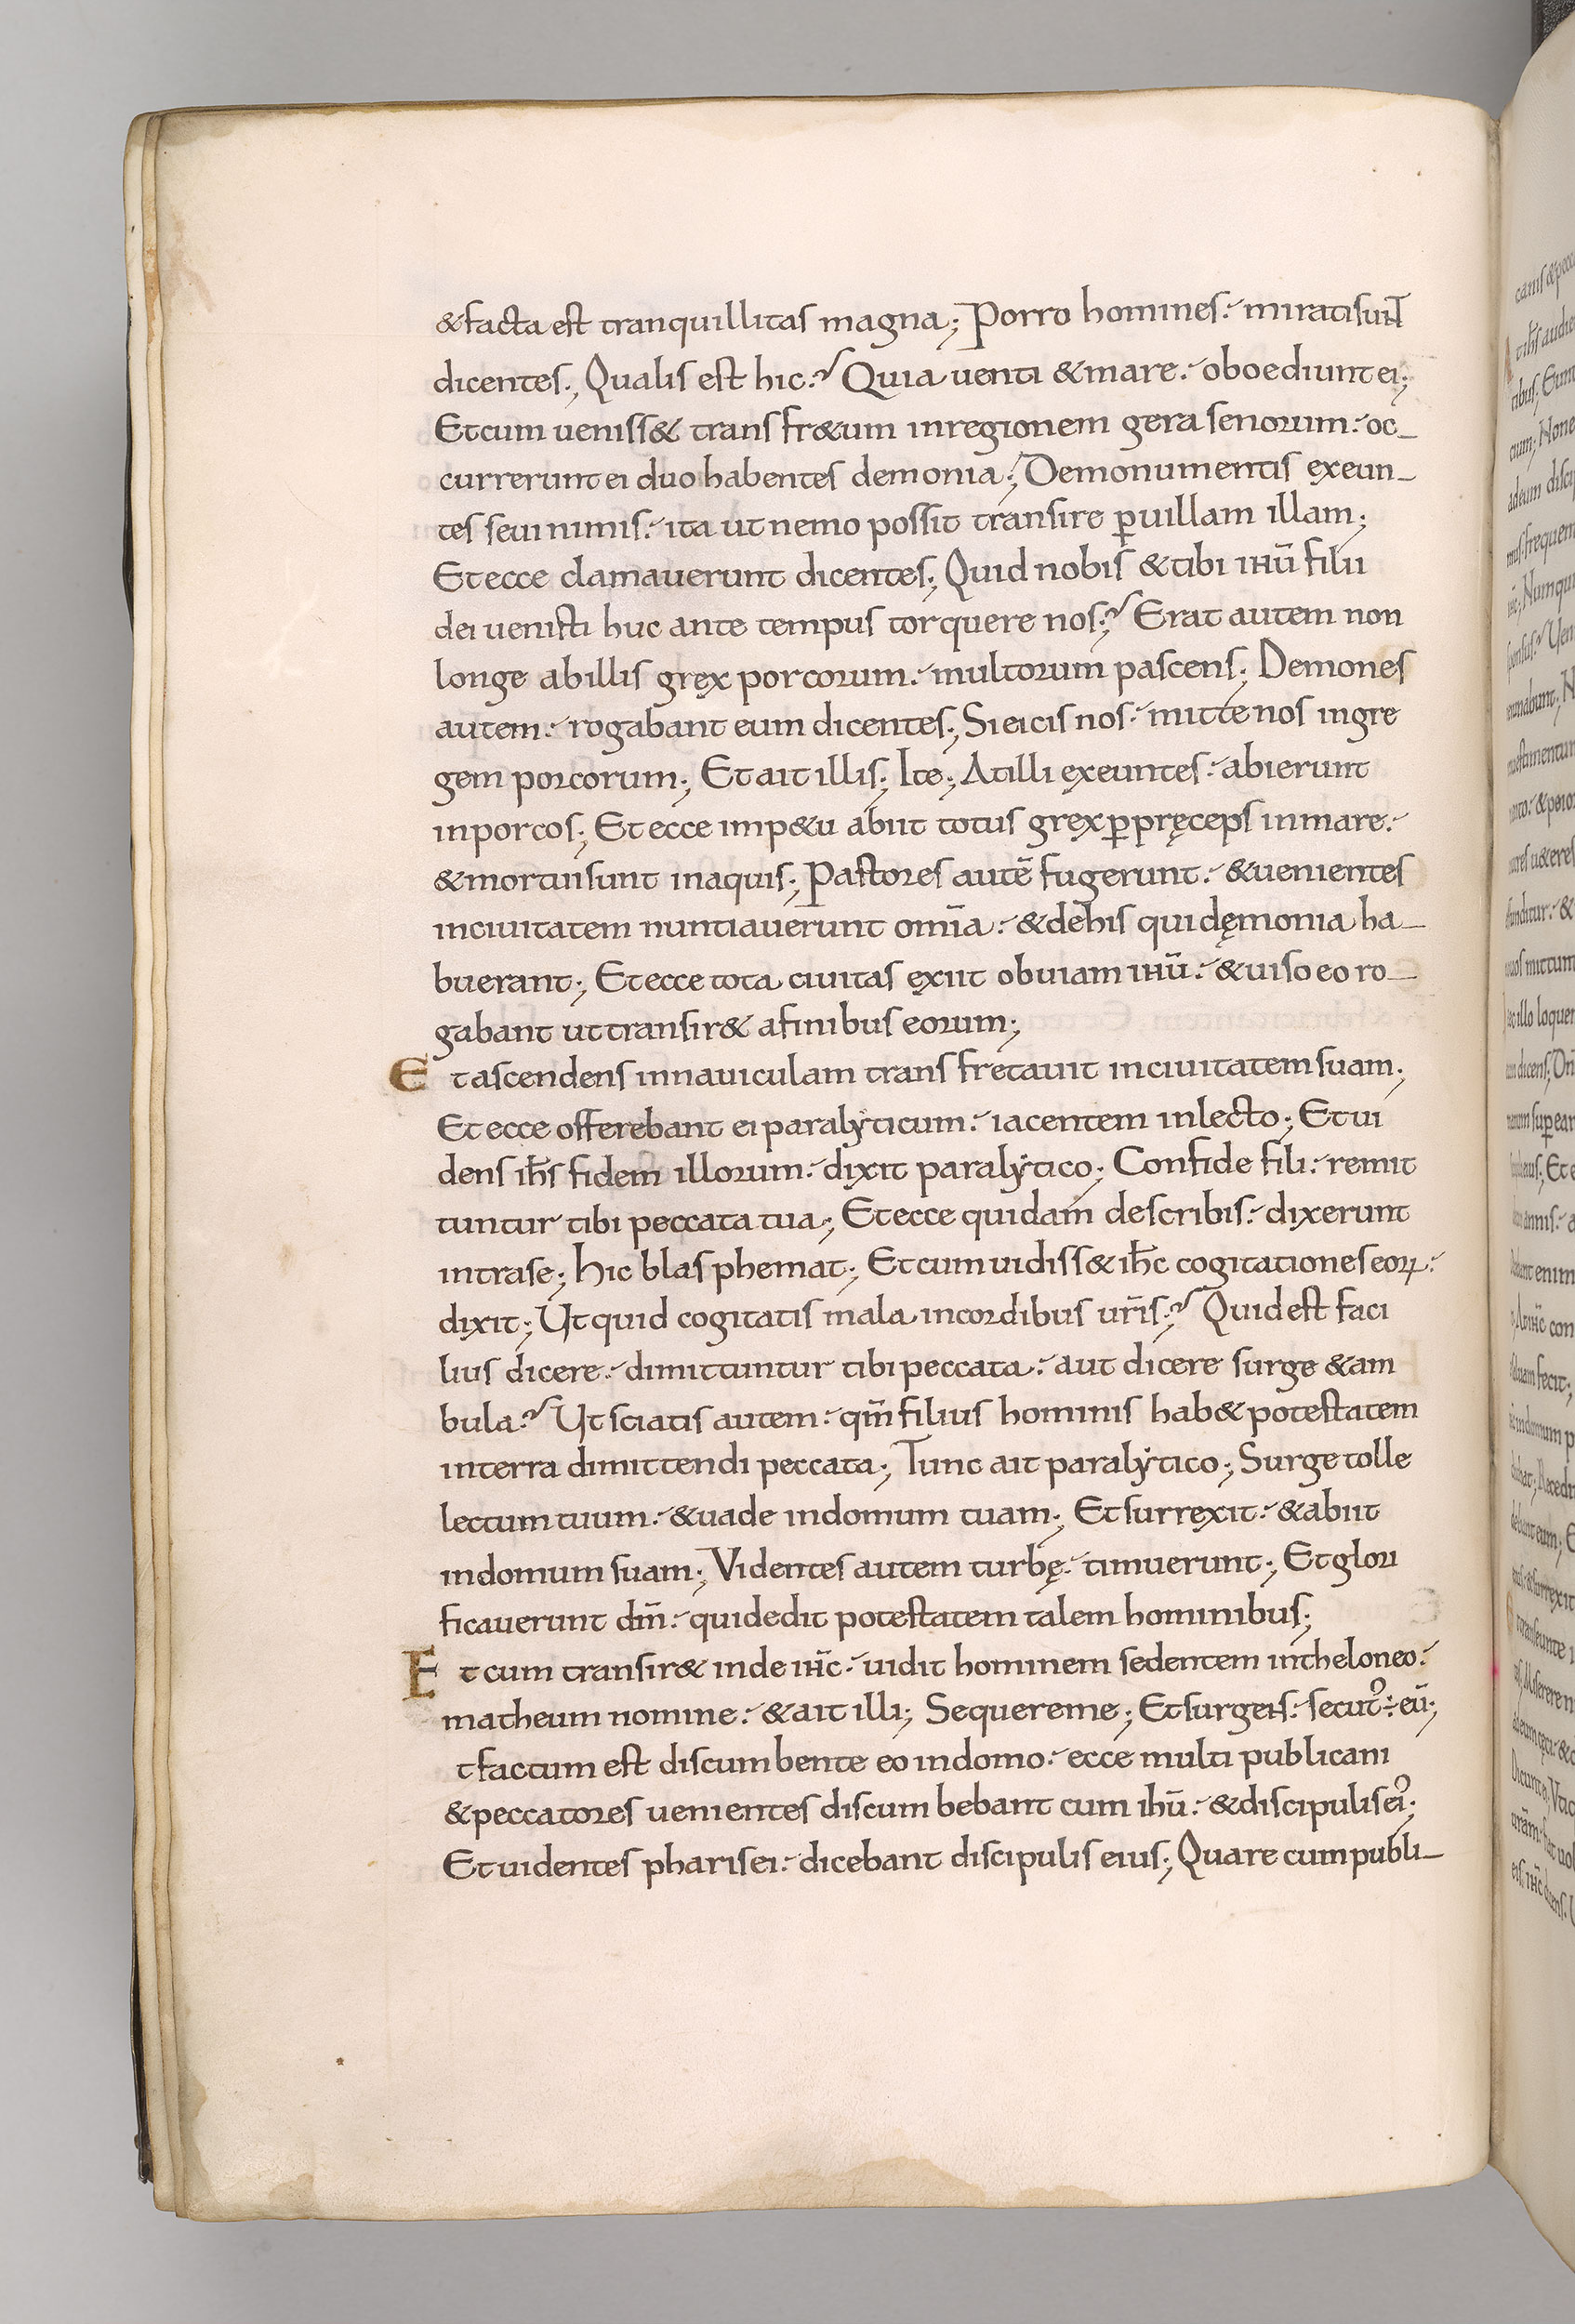 &facta est tranquillitas magna; Porro homines. miratisunt
dicentes; Qualis est hic.? Quia uenti &mare. oboediunt ei;
Etcum ueniss& trans fr&um inregionem gera senorum. oc-
currerunt ei duo habentes demonia; Demonumentis exeun-
tes seui nimis. ita ut nemo possit transire p̄ uillam illam;
Et ecce clamauerunt dicentes; Quid nobis &tibi ihū filii
dei uenisti huc ante tempus torquere nos;? Erat autem non
longe abillis gręx porcorum. multorum pascens; Demones
autem. rogabant eum dicentes; Sieicis nos. mitte nos ingre
gem porcorum; Et ait illis; Ite; Atilli exeuntes. abierunt
inporcos; Et ecce imp&u abiit totus grex p̄pręceps inmare.
&mortuisunt inaquis; Pastores autē fugerunt. &uenientes
inciuitatem nuntiauerunt omīa. &dehis qui dęmonia ha-
buerant; Et ecce tota ciuitas exiit obuiam ihū. &uiso eo ro-
gabant ut transir& afinibus eorum;
Et ascendens innauiculam trans fretauit inciuitatem suam;
Et ecce offerebant ei paralyticum. iacentem inlecto; Et ui
dens ih̄s fidem illorum. dixit paralytico; Confide fili. remit
tuntur tibi peccata tua; Et ecce quidam describis. dixerunt
intrase; hic blas phemat; Et cum uidiss& ih̄c cogitationes eoꝝ.
dixit; Ut quid cogitatis mala incordibus ur̄is;? Quid est faci
lius dicere. dimittuntur tibi peccata. aut dicere surge &am
bula.? Ut sciatis autem. qm̄ filius hominis hab& potestatem
interra dimittendi peccata; Tunc ait paralytico; Surge tolle
lectum tuum. &uade indomum tuam; Et surrexit. &abiit
indomum suam; Videntes autem turbę. timuerunt; Et glori
ficauerunt dm̄. quidedit potestatem talem hominibus;
Et cum transir& inde ih̄c. uidit hominem sedentem intheloneo.
matheum nomine. &ait illi; Sequereme; Et surgens. secut᾿ ÷ eū;
t factum est discumbente eo indomo. ecce multi publicani
&peccatores uenientes discum bebant cum ihū. &discipulis ei᾿;
Et uidentes pharisei. dicebant discipulis eius; Quare cum publi-